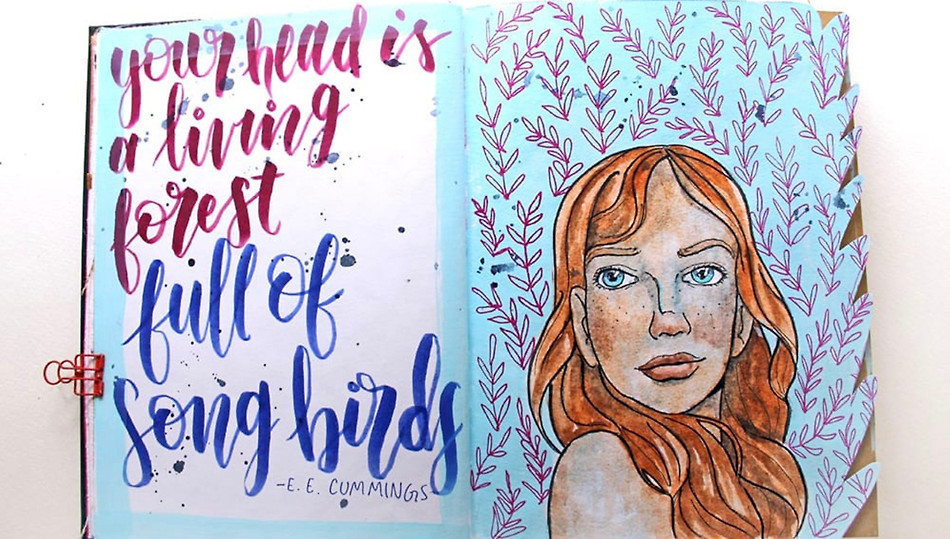 your head is
a living
forest
full of
song birds
-E. E. CUMMINGS